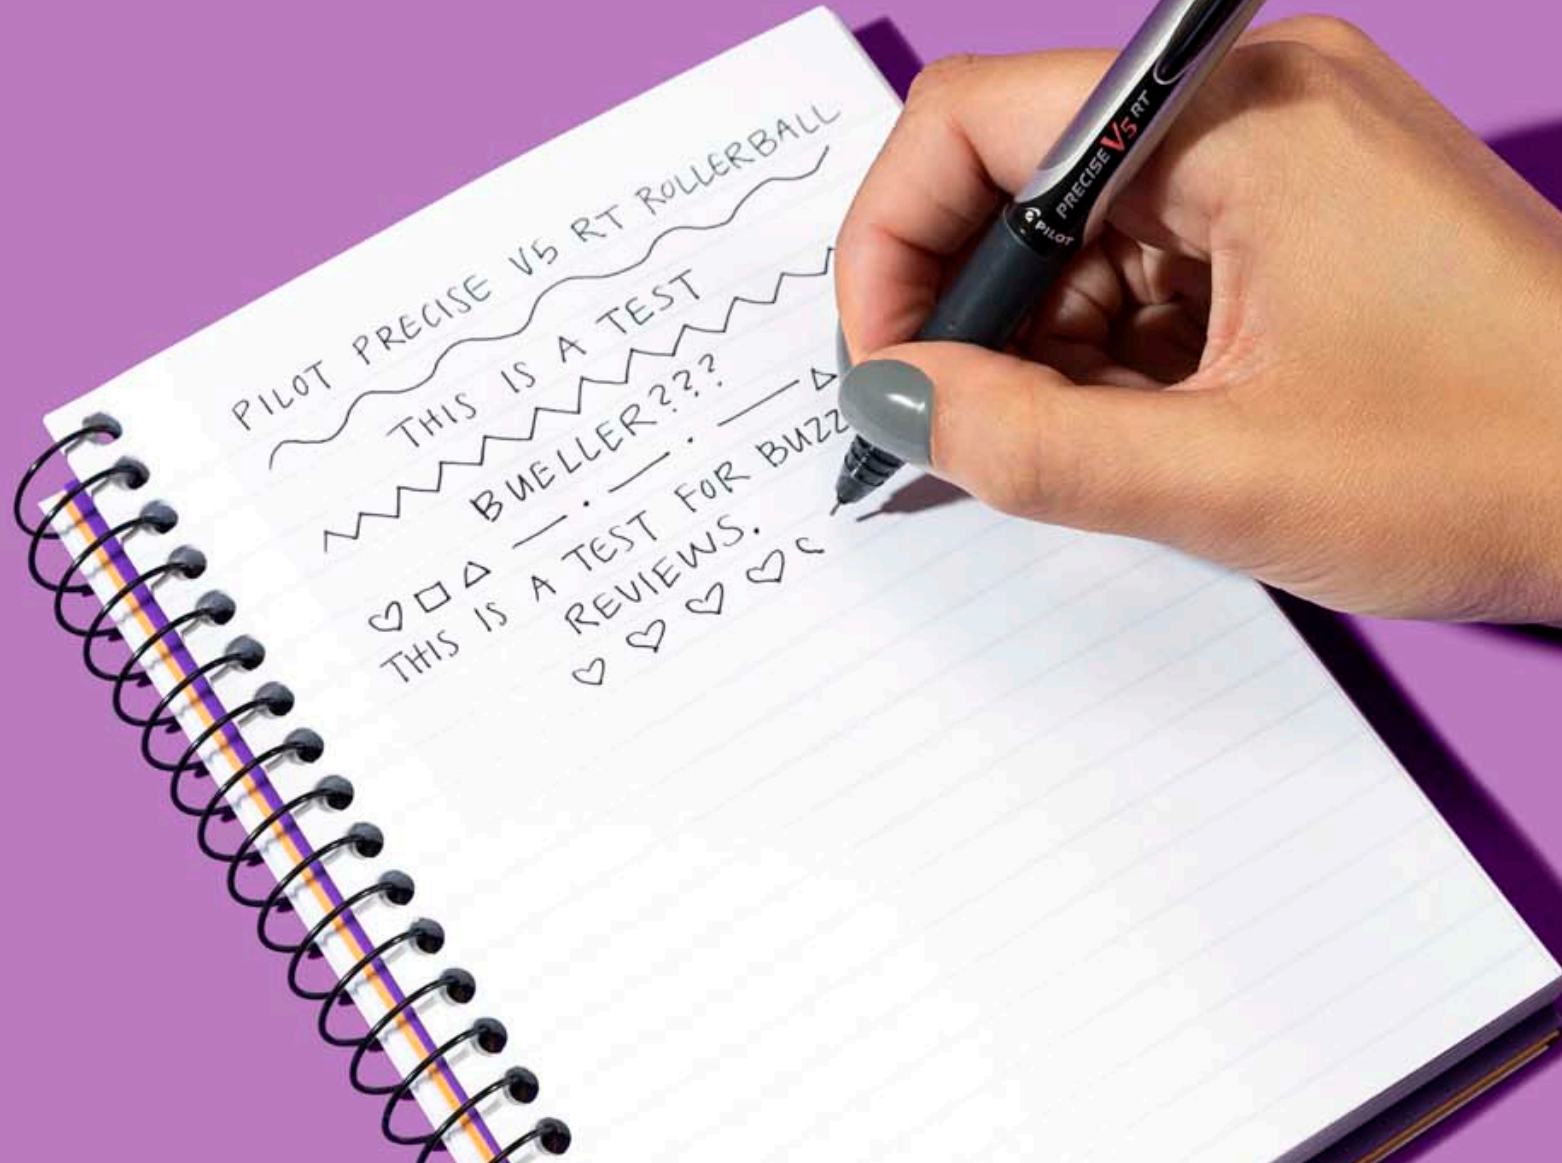 PILOT PRECISE V5 RT ROLLERBALL
THIS IS A TEST
BUELLER???
THIS IS A TEST FOR BUZZ
REVIEWS.
PRECISE V5 RT
PILOT